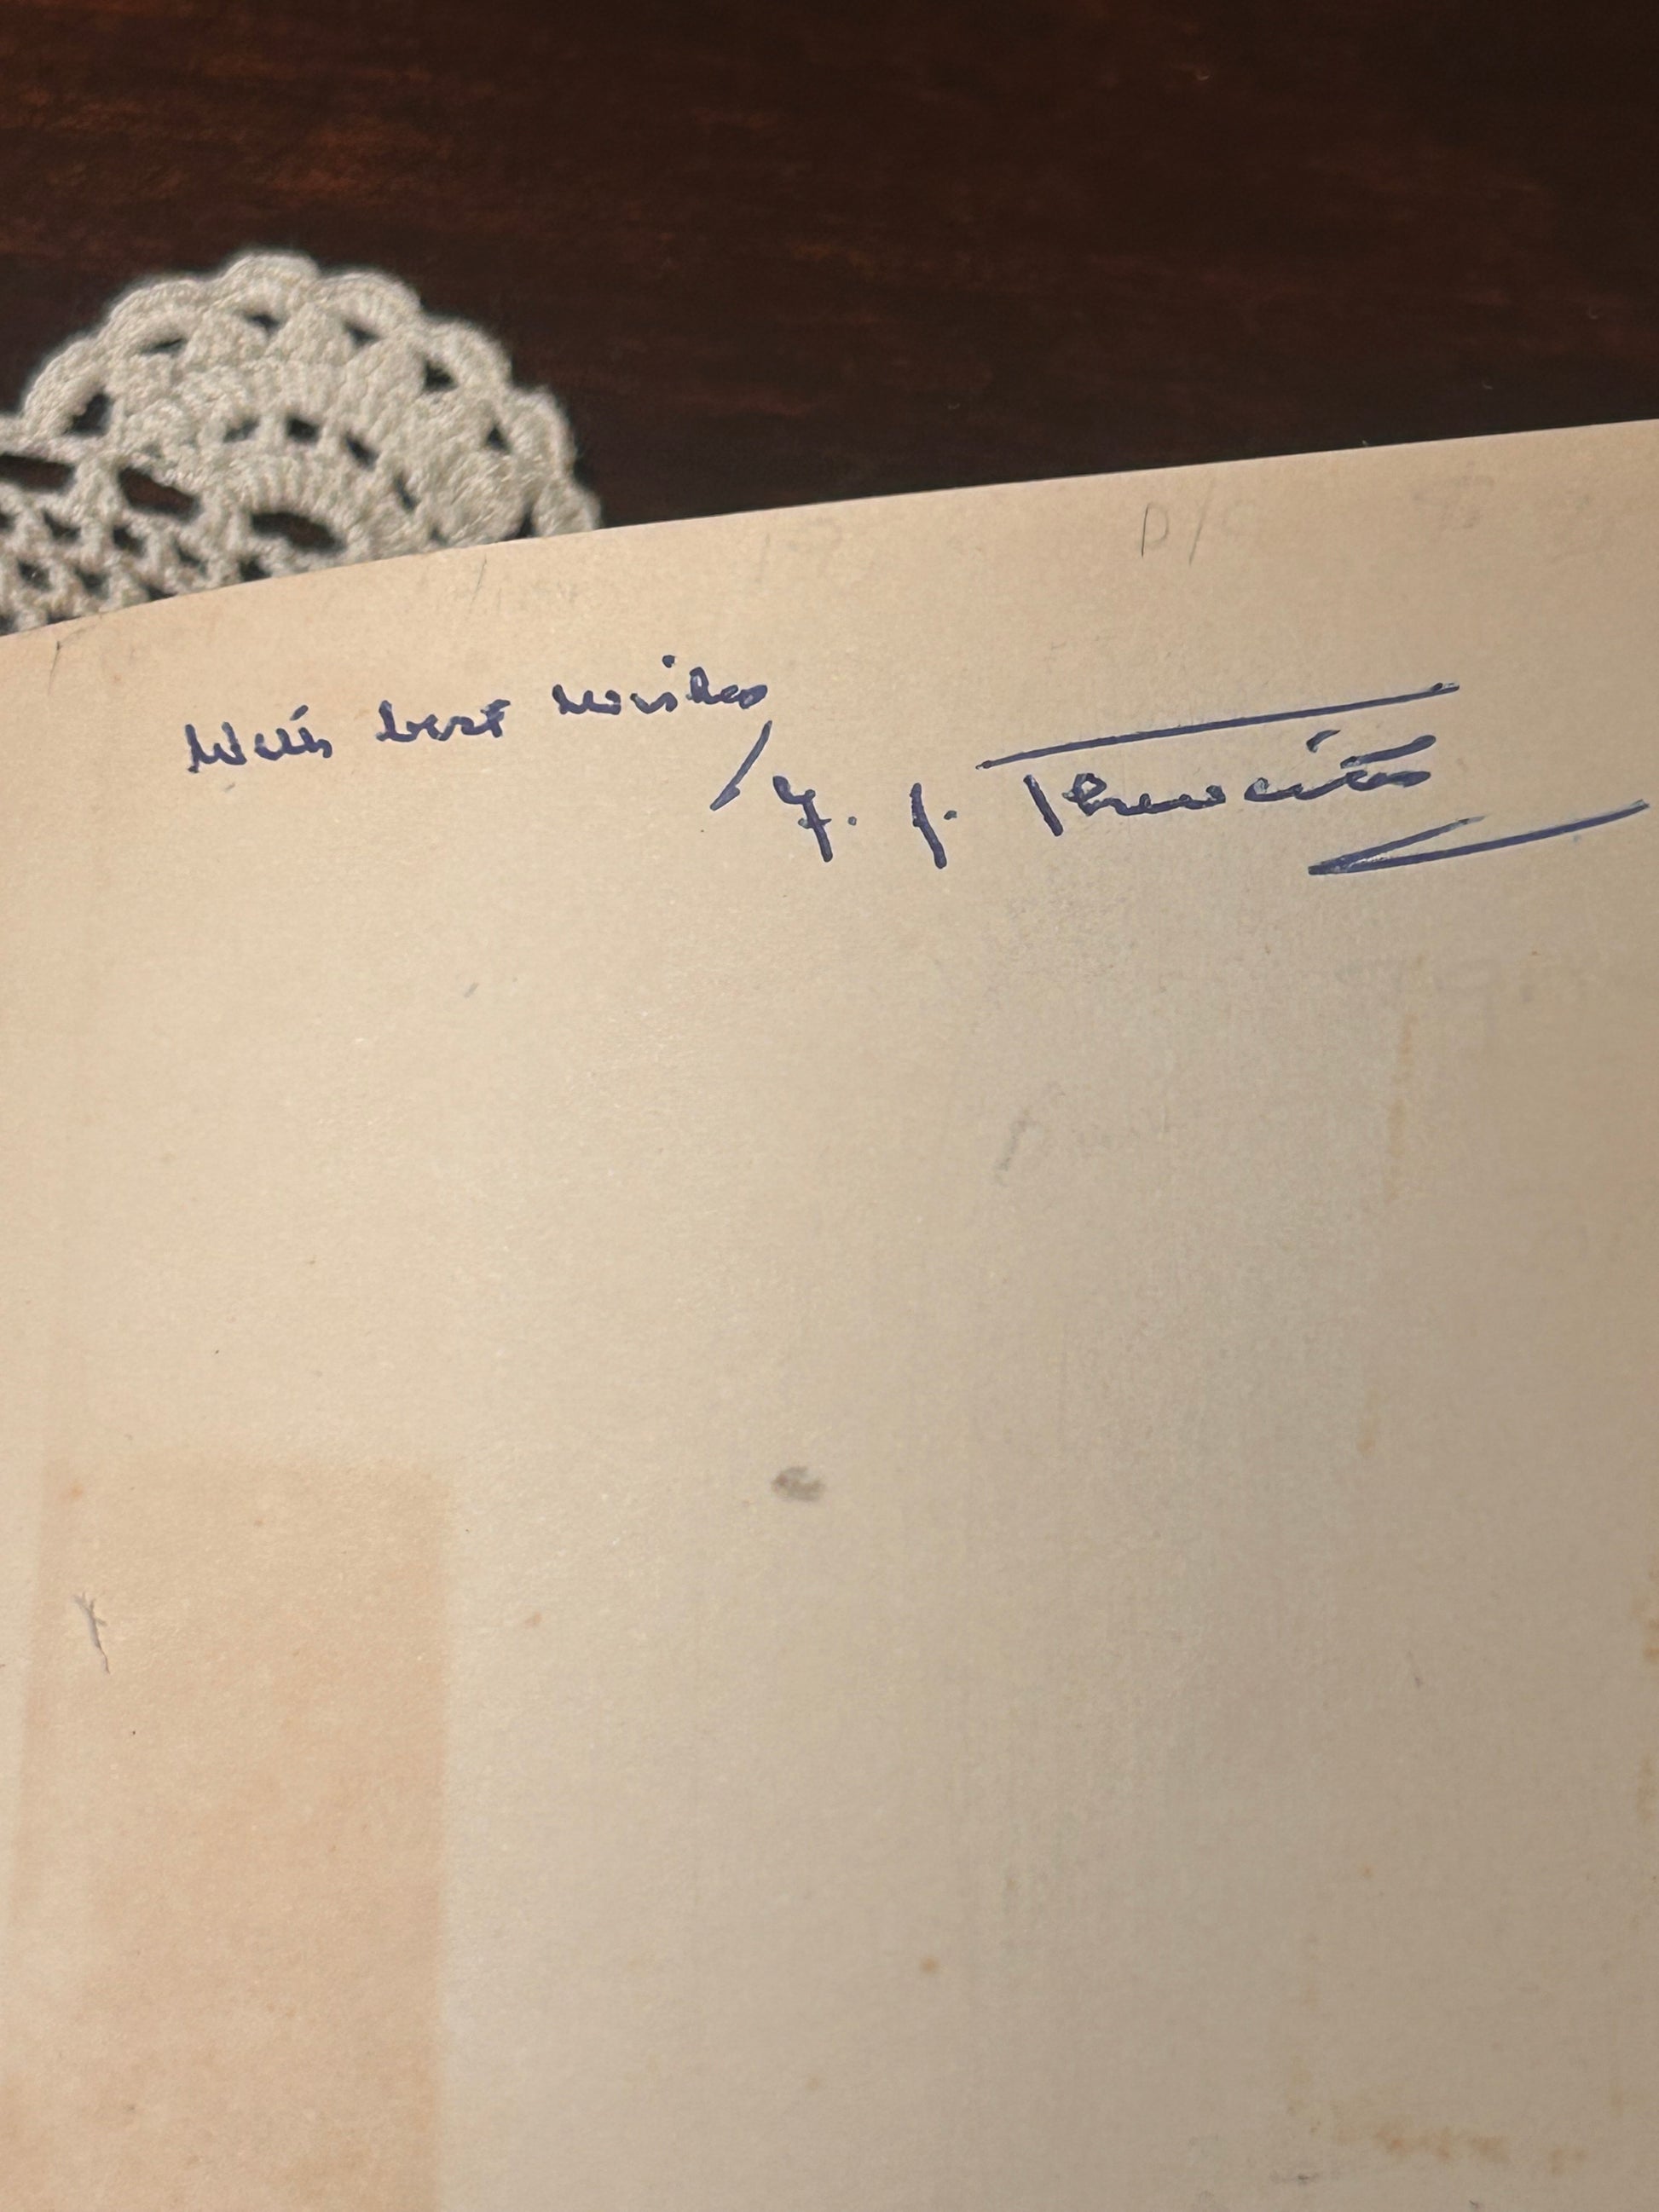 With best wishes
F. J. Thwaites